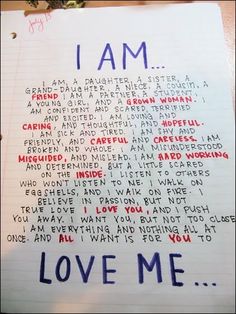 July 15
I AM...
I AM, A DAUGHTER, A SISTER, A
GRAND-DAUGHTER, A NIECE, A COUSIN, A
FRIEND I AM A PARTNER, A STUDENT,
A YOUNG GIRL, AND A GROWN WOMAN. I
AM CONFIDENT AND SCARED, TERRIFIED
AND EXCITED. I AM LOVING AND
CARING, AND THOUGHTFUL, AND HOPEFUL.
I AM SICK AND TIRED. I AM SHY AND
FRIENDLY, AND CAREFUL AND CARELESS. I AM
BROKEN AND WHOLE. I AM MISUNDERSTOOD
MISGUIDED, AND MISLEAD. I AM HARD WORKING
AND DETERMINED, BUT A LITTLE SCARED
ON THE INSIDE. I LISTEN TO OTHERS
WHO WON'T LISTEN TO ME. I WALK ON
EGGSHELLS, AND I WALK ON FIRE. I
BELIEVE IN PASSION, BUT NOT
TRUE LOVE I LOVE YOU, AND I PUSH
YOU AWAY. I WANT YOU, BUT NOT TOO CLOSE
I AM EVERYTHING AND NOTHING ALL AT
ONCE. AND ALL I WANT IS FOR YOU TO
LOVE ME...